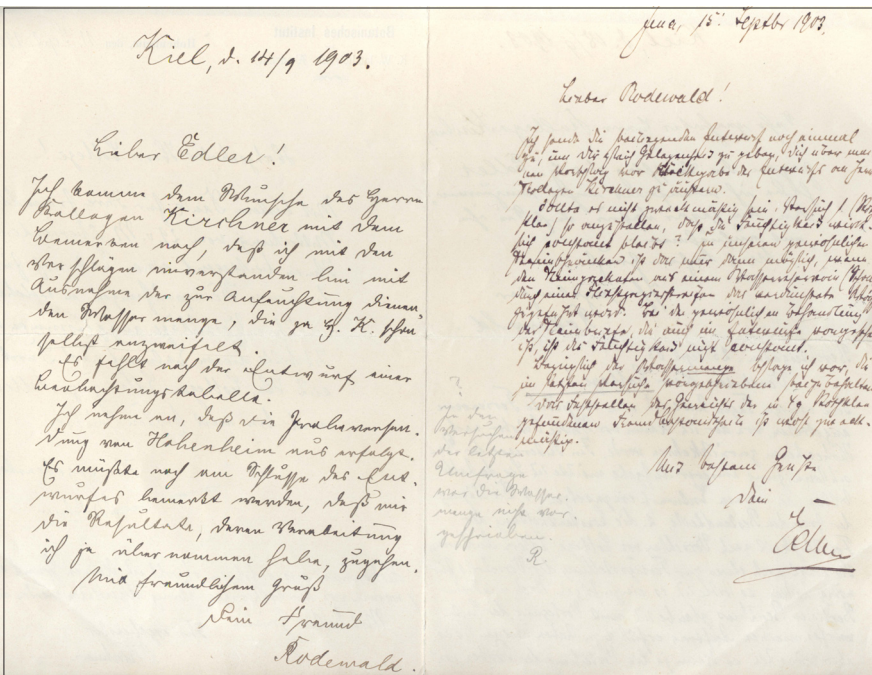 Kiel, d. 14/9 1903.
Lieber Edler!
Ich komme dem Wunsche des Herrn
Kollegen Kirchner mit dem
Bemerken nach, daß ich mit den
Vorschlägen einverstanden bin mit
Ausnahme der zur Anfeuchtung dienen-
den Wassermenge, die ja H. K. schon
selbst anzweifelt.
Es fehlt noch der Entwurf einer
Beobachtungstabelle.
Ich nehme an, daß die Probenversen-
dung von Hohenheim aus erfolgt.
Es müßte noch am Schlusse des Ent-
wurfes bemerkt werden, daß mir
die Resultate, deren Verarbeitung
ich ja übernommen habe, zugehen.
Mit freundlichem Gruß
Dein Freund
Rodewald.
Jena, 15. Septbr 1903.
Lieber Rodewald!
Ich sende Dir Entwurf noch einmal
zu, um Dir Gelegenheit zu geben, Dich über
vor des Entwurfs an
Kollegen Kirchner zu äußern.
Sollte es nicht zweckmäßig sein, Versuch 1
so anzustellen, daß die Feuchtigkeit wirk-
lich constant bleibt? In unseren gewöhnlichen
ist das nur dann möglich, wenn
den aus einem Wasserreservoir
durch einen das verdunstete
zugeführt wird. Bei der gewöhnlichen
der die auch im Entwurfe
ist, ist die Feuchtigkeit nicht constant.
Bezüglich der Wassermenge schlage ich vor, die
im letzten Versuche vorgeschriebene beizubehalten.
Das Feststellen des Gewichts der in
gefundenen Fremdbestandteile ist nicht zweck-
mäßig.
Mit bestem Gruße
Dein
Edler
?
In den
Versuchen
der letzten
Umfrage
war die Wasser-
menge nicht vor-
geschrieben.
R.